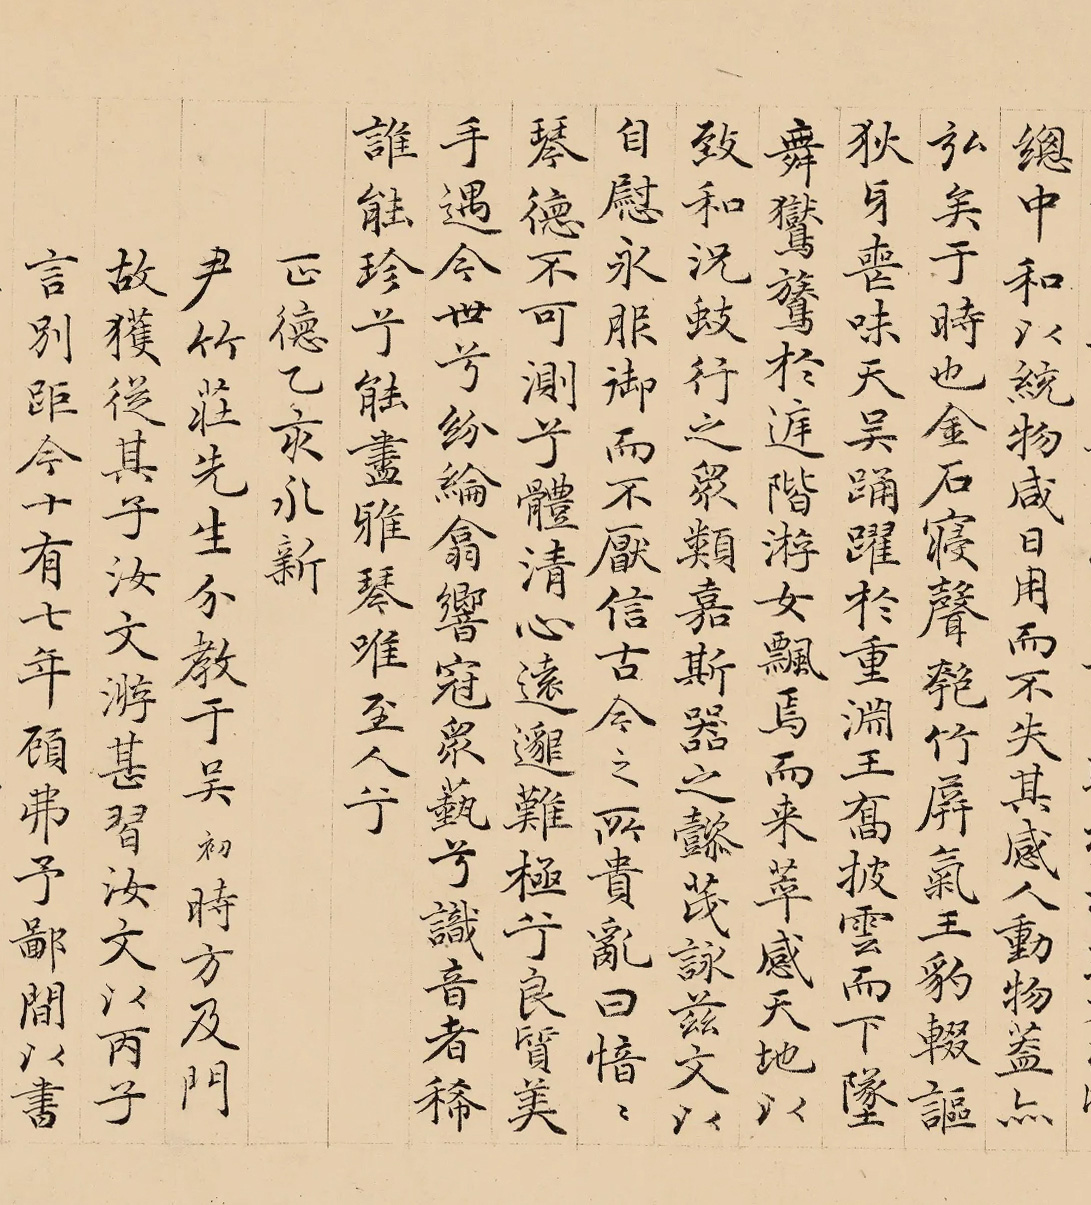 總中和以統物咸日用而不失其感人動物蓋亦
弘矣于時也金石寢聲匏竹屏氣王豹輟謳
狄牙喪味天吴踊躍於重淵王喬披雲而下墜
舞鸑鷟於庭階游女飄焉而来萃感天地以
致和況蚑行之衆類嘉斯器之懿茂詠兹文以
自慰永服御而不厭信古今之所貴亂曰愔〻
琴德不可測兮體清心遠邈難極兮良質美
手遇今世兮紛綸翕響冠衆藝兮識音者稀
誰能珍兮能盡雅琴唯至人兮
正德乙亥永新
尹竹莊先生分教于吴初時方及門
故獲從其子汝文游甚習汝文以丙子
言別距今十有七年顧弗予鄙間以書